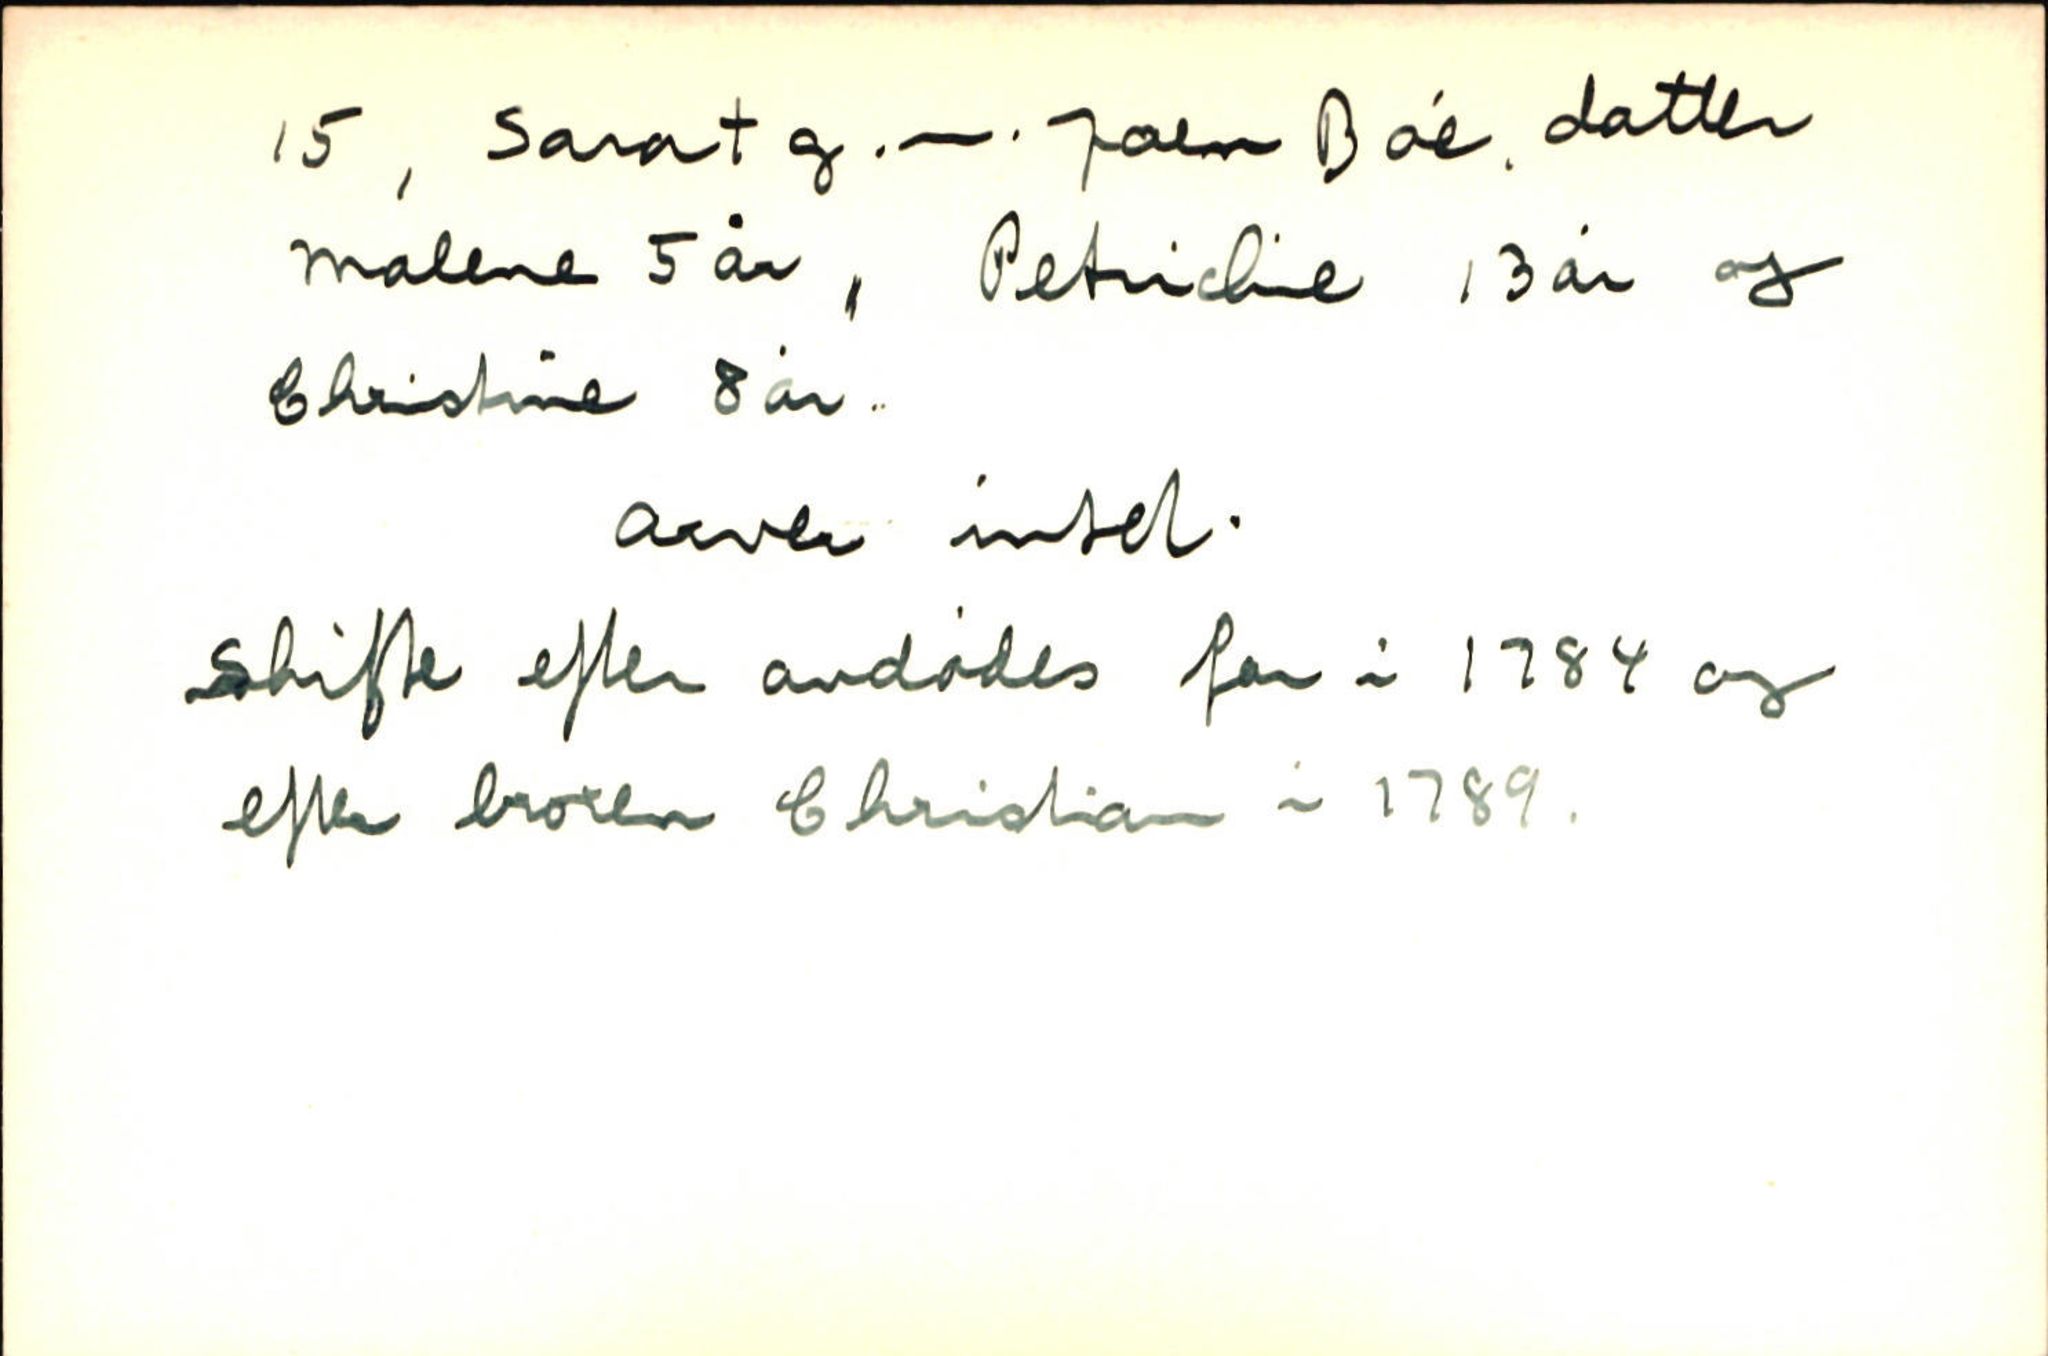 15, Sara † g.m. Joen Böe. datter
Malene 5 år, Petrichie 13 år og
Christine 8 år.
arver intet.
Skifte efter avdödes far i 1784 og
efter broren Christian i 1789.